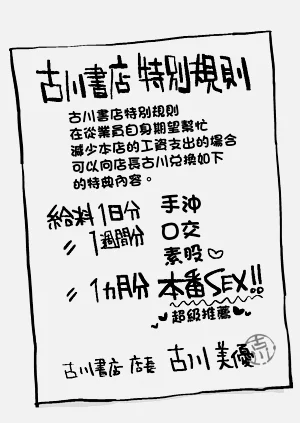 古川書店 特別規則
古川書店特別規則
在從業員自身期望幫忙
減少本店的工資支出的場合
可以向店長古川兌換如下
的特典內容。
給料1日分 手沖
〃 1週間分 口交
素股♡
〃 1カ月分 本番SEX!!
♥超級推薦♥
古川書店 店長 古川 美優
古川